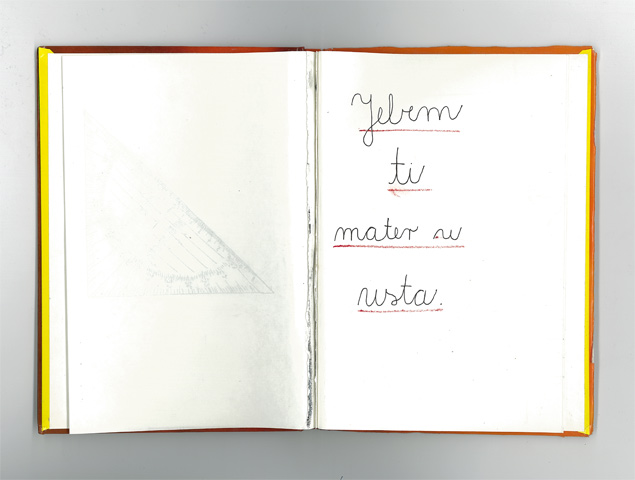 Jebem
ti
mater u
usta.